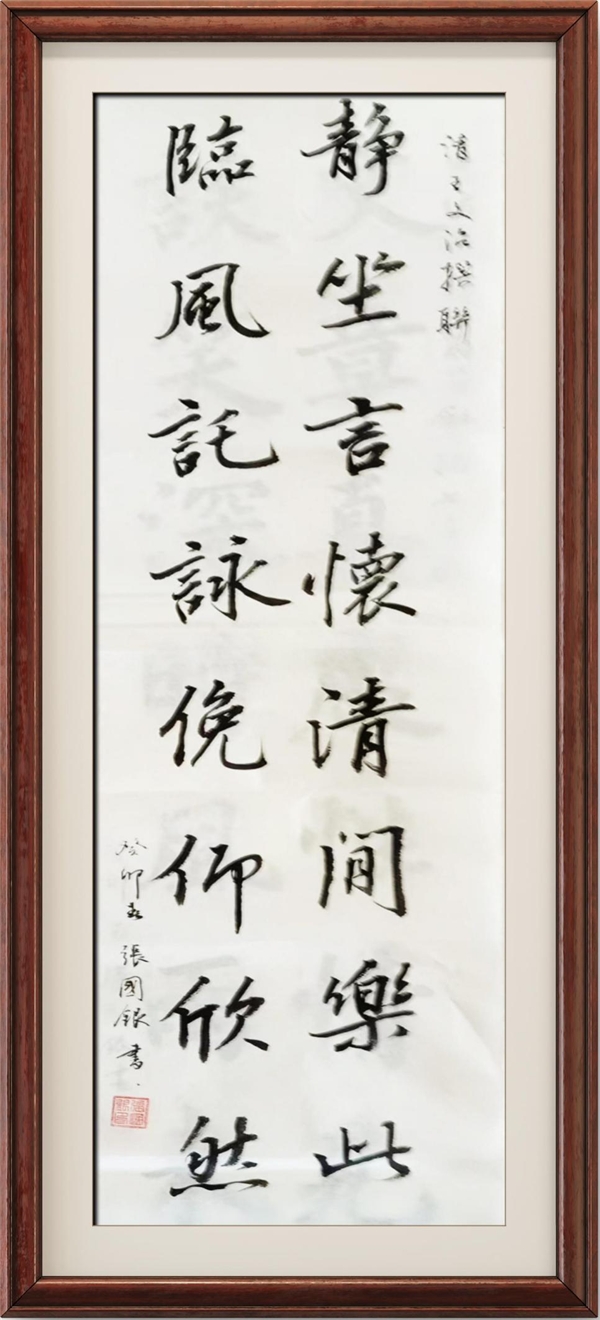 清王文治撰聯
静坐言懷清間樂此
臨風託詠俛仰欣然
癸卯春張國銀書